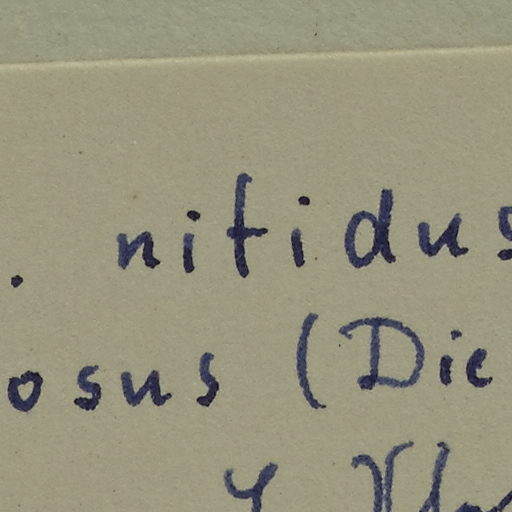 . nitidus
osus (Die